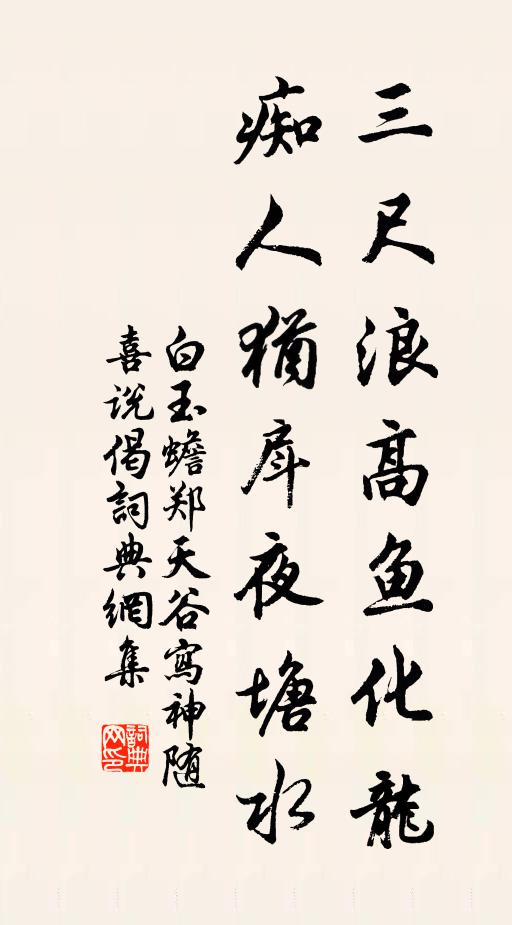 三尺浪高鱼化龍
痴人猶戽夜塘水
白玉蟾郑天谷寫神随
喜说偈詞典網集
詞典网印